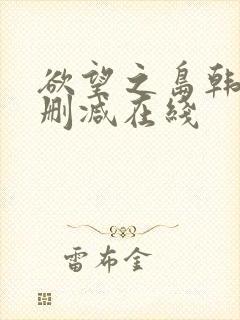 欲望之岛韩
删减在线
雷布金